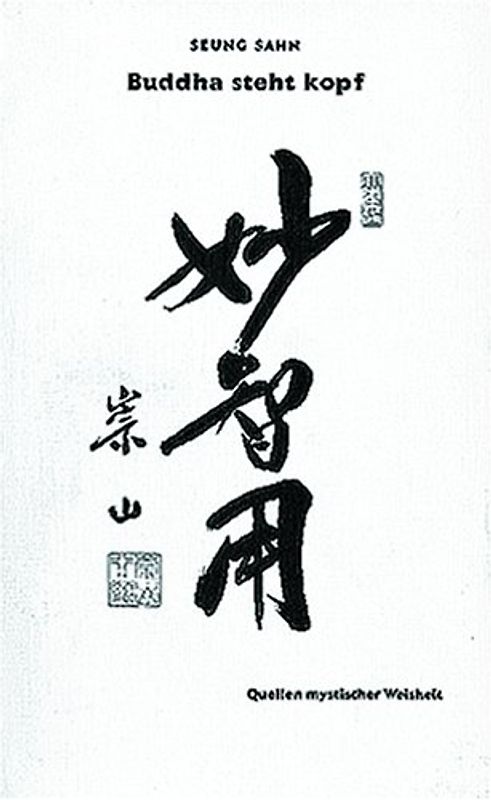 SEUNG SAHN
Buddha steht kopf
妙智用
崇山
Quellen mystischer Weisheit